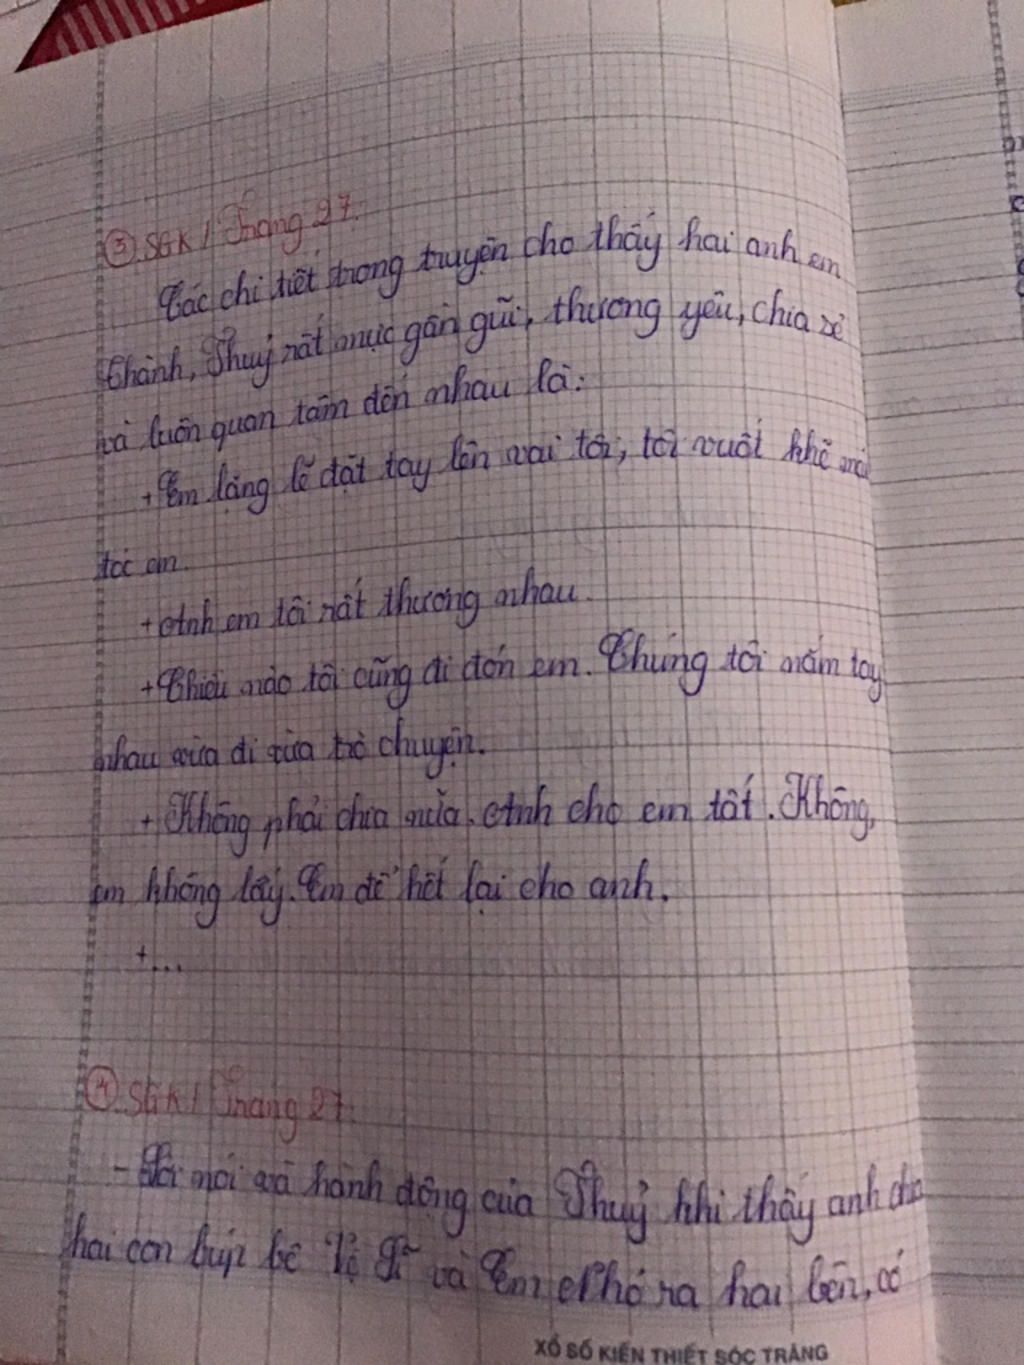 ③ SGK / Trang 27.
Các chi tiết trong truyện cho thấy hai anh em
Thành, Thuỷ rất mực gần gũi, thương yêu, chia sẻ
và luôn quan tâm đến nhau là:
+ Em lặng lẽ đặt tay lên vai tôi, tôi vuốt khẽ mái
tóc em.
+ Anh em tôi rất thương nhau.
+ Chiều nào tôi cũng đi đón em. Chúng tôi nắm tay
nhau vừa đi vừa trò chuyện.
+ Không phải chia nữa. Anh cho em tất. Không,
em không lấy. Em để hết lại cho anh.
+...
④ SGK / Trang 27
- Lời nói và hành động của Thuỷ khi thấy anh chia
hai con búp bê Vệ Sĩ và Em Nhỏ ra hai bên, có
XỔ SỐ KIẾN THIẾT SÓC TRĂNG